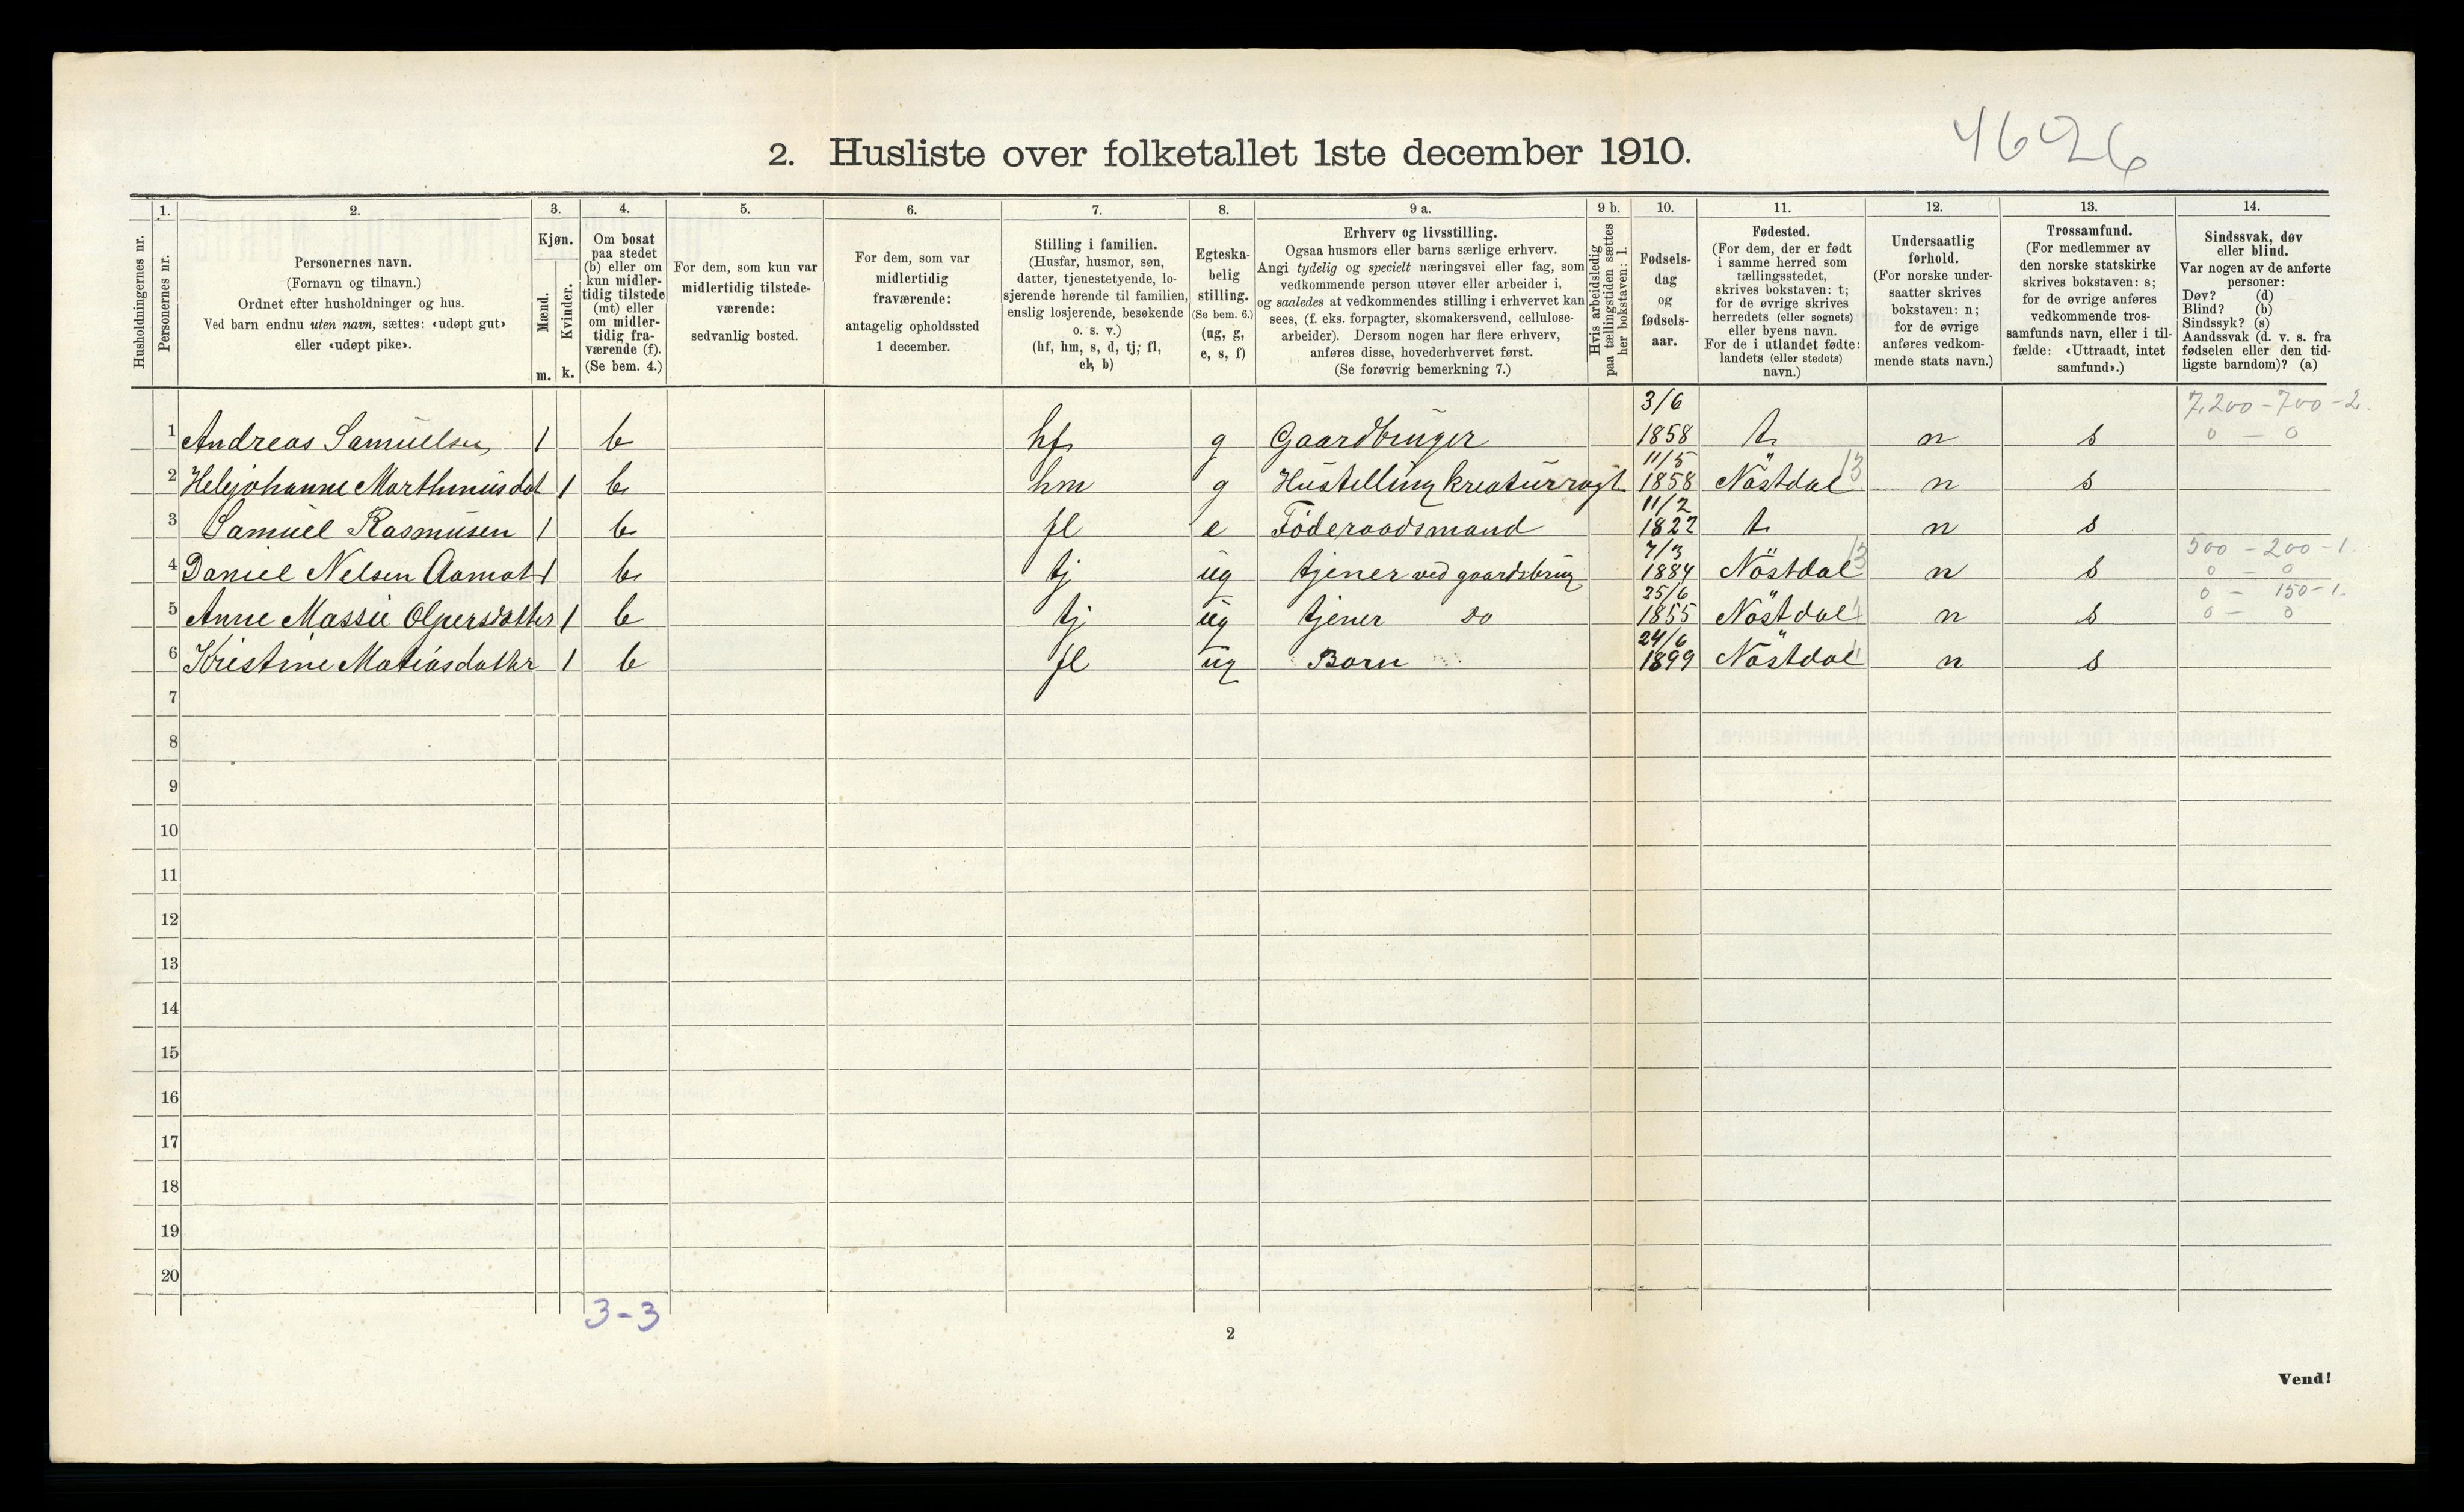 4626
2. Husliste over folketallet 1ste december 1910.
Husholdningernes nr.
1. Personernes nr.
2. Personernes navn.
(Fornavn og tilnavn.)
Ordnet efter husholdninger og hus.
Ved barn endnu uten navn, sættes: «udøpt gut»
eller «udøpt pike».
3. Kjøn.
Mænd. m.
Kvinder. k.
4. Om bosat
paa stedet
(b) eller om
kun midler-
tidig tilstede
(mt) eller
om midler-
tidig fra-
værende (f).
(Se bem. 4.)
5. For dem, som kun var
midlertidig tilstede-
værende:
sedvanlig bosted.
6. For dem, som var
midlertidig
fraværende:
antagelig opholdssted
1 december.
7. Stilling i familien.
(Husfar, husmor, søn,
datter, tjenestetyende, lo-
sjerende hørende til familien,
enslig losjerende, besøkende
o. s. v.)
(hf, hm, s, d, tj, fl,
el, b)
8. Egteska-
belig
stilling.
(Se bem. 6.)
(ug, g,
e, s, f)
9 a. Erhverv og livsstilling.
Ogsaa husmors eller barns særlige erhverv.
Angi tydelig og specielt næringsvei eller fag, som
vedkommende person utøver eller arbeider i,
og saaledes at vedkommendes stilling i erhvervet kan
sees, (f. eks. forpagter, skomakersvend, cellulose-
arbeider). Dersom nogen har flere erhverv,
anføres disse, hovederhvervet først.
(Se forøvrig bemerkning 7.)
9 b. Hvis arbeidsledig
paa tællingstiden sættes
her bokstaven: l.
10. Fødsels-
dag
og
fødsels-
aar.
11. Fødested.
(For dem, der er født
i samme herred som
tællingsstedet,
skrives bokstaven: t;
for de øvrige skrives
herredets (eller sognets)
eller byens navn.
For de i utlandet fødte:
landets (eller stedets)
navn.)
12. Undersaatlig
forhold.
(For norske under-
saatter skrives
bokstaven: n;
for de øvrige
anføres vedkom-
mende stats navn.)
13. Trossamfund.
(For medlemmer av
den norske statskirke
skrives bokstaven: s;
for de øvrige anføres
vedkommende tros-
samfunds navn, eller i til-
fælde: «Uttraadt, intet
samfund».)
14. Sindssvak, døv
eller blind.
Var nogen av de anførte
personer:
Døv? (d)
Blind? (b)
Sindssyk? (s)
Aandssvak (d. v. s. fra
fødselen eller den tid-
ligste barndom)? (a)
3/6 7,200 - 700 - 2.
1 Andreas Samuelsen 1 b hf g Gaardbruger 1858 t n s 0 - 0
11/5
2 Helejohanne Marthinusdat 1 b hm g Hustelling kreaturrøgt 1858 Nöstdal 13 n s
11/2
3 Samuel Rasmusen 1 b fl e Föderaadsmand 1822 t n s
7/3 500 - 200 - 1.
4 Daniel Nelsen Aamot 1 b tj ug tjener ved gaardsbrug 1884 Nöstdal 13 n s 0 - 0
25/6 0 - 150 - 1.
5 Anne Massie Olpersdatter 1 b tj ug tjener do 1855 Nöstdal n s 0 - 0
24/6
6 Kristine Matiasdatter 1 b fl ug Barn 1899 Nöstdal n s
7
8
9
10
11
12
13
14
15
16
17
18
19
20
3-3
2
Vend!